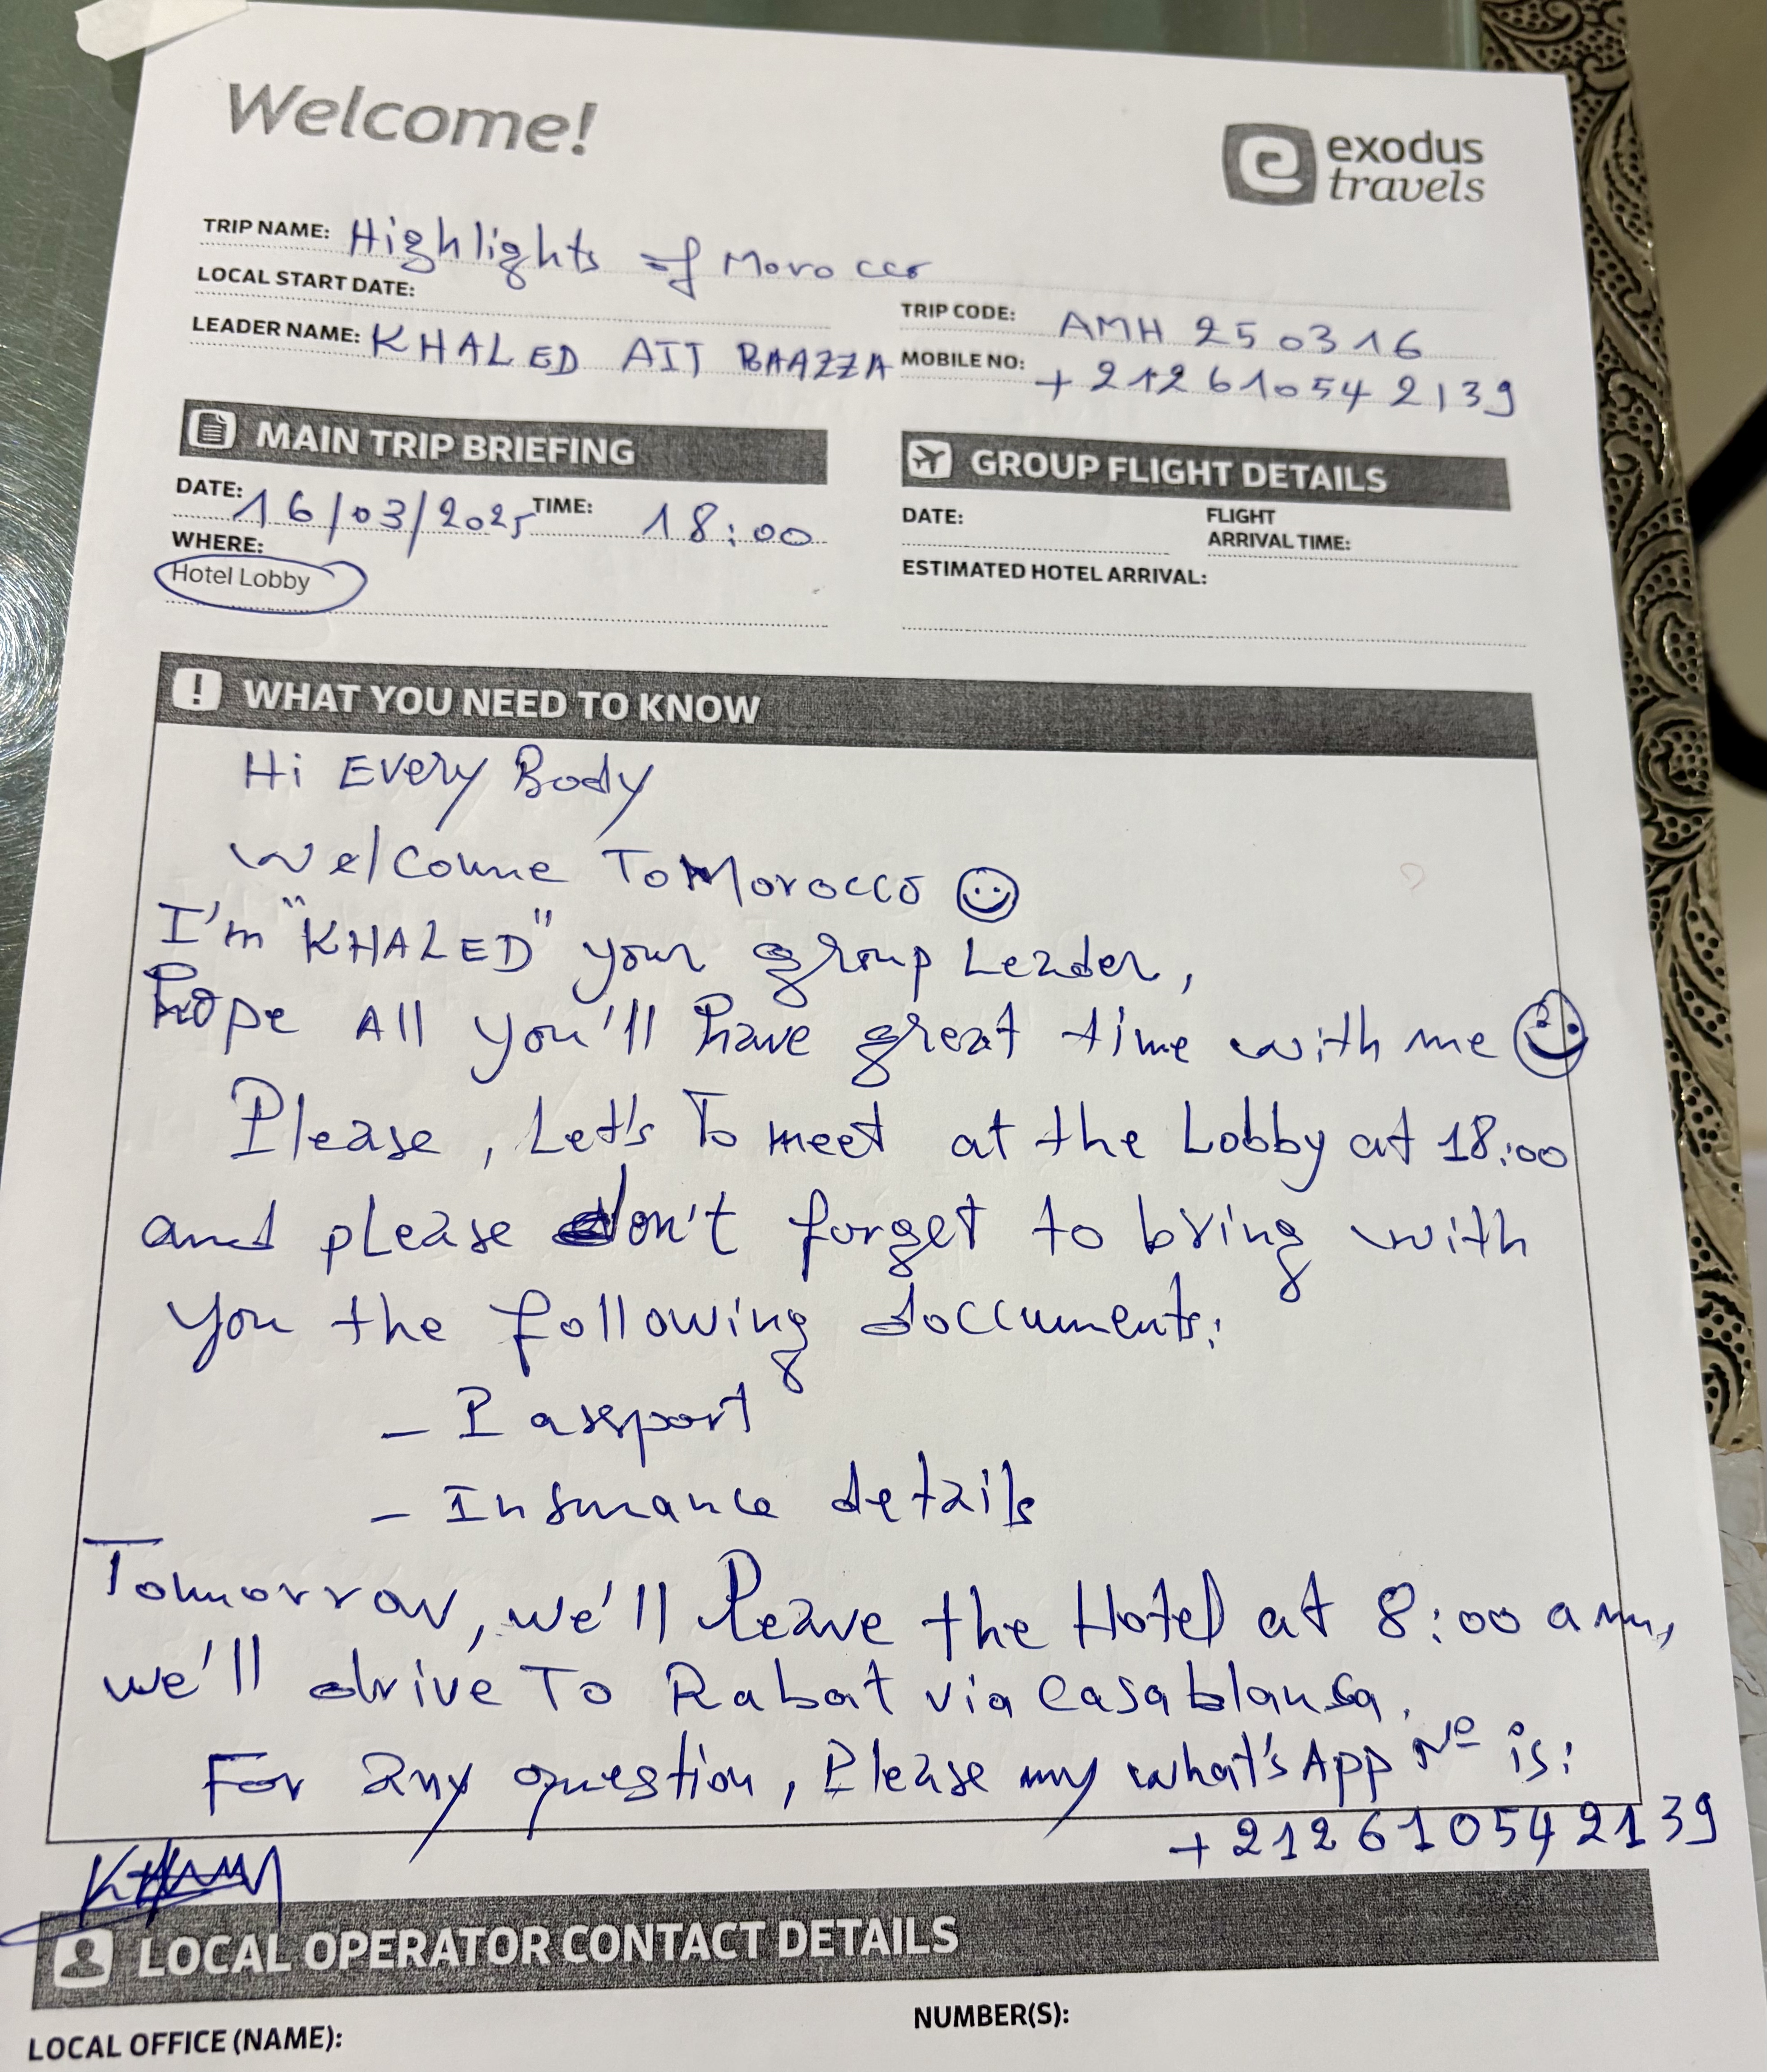 Welcome!
exodus
travels
TRIP NAME: Highlights of Morocco
LOCAL START DATE:
TRIP CODE: AMH 250316
LEADER NAME: KHALED AIT BAAZZA
MOBILE NO: +212610542139
MAIN TRIP BRIEFING
DATE: 16/03/2025 TIME: 18:00
WHERE:
Hotel Lobby
GROUP FLIGHT DETAILS
DATE:
FLIGHT
ARRIVAL TIME:
ESTIMATED HOTEL ARRIVAL:
! WHAT YOU NEED TO KNOW
Hi Every Body
Welcome To Morocco
I'm "KHALED" your group Leader,
hope All you'll have great time with me
Please, Let's To meet at the Lobby at 18:00
and please don't forget to bring with
you the following doccuments:
- Passport
- Insurance details
Tomorrow, we'll leave the Hotel at 8:00 am,
we'll drive To Rabat via Casablanca.
For any question, Please my what's App Nº is:
+212610542139
LOCAL OPERATOR CONTACT DETAILS
LOCAL OFFICE (NAME):
NUMBER(S):